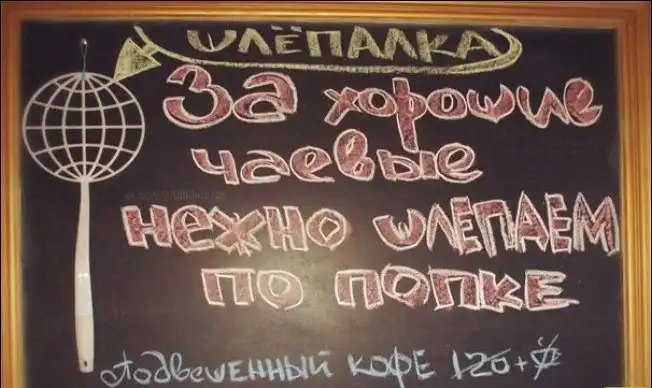 ШЛЁПАЛКА
За хорошие
чаевые
нежно шлёпаем
по попке
Подвешенный кофе 120+